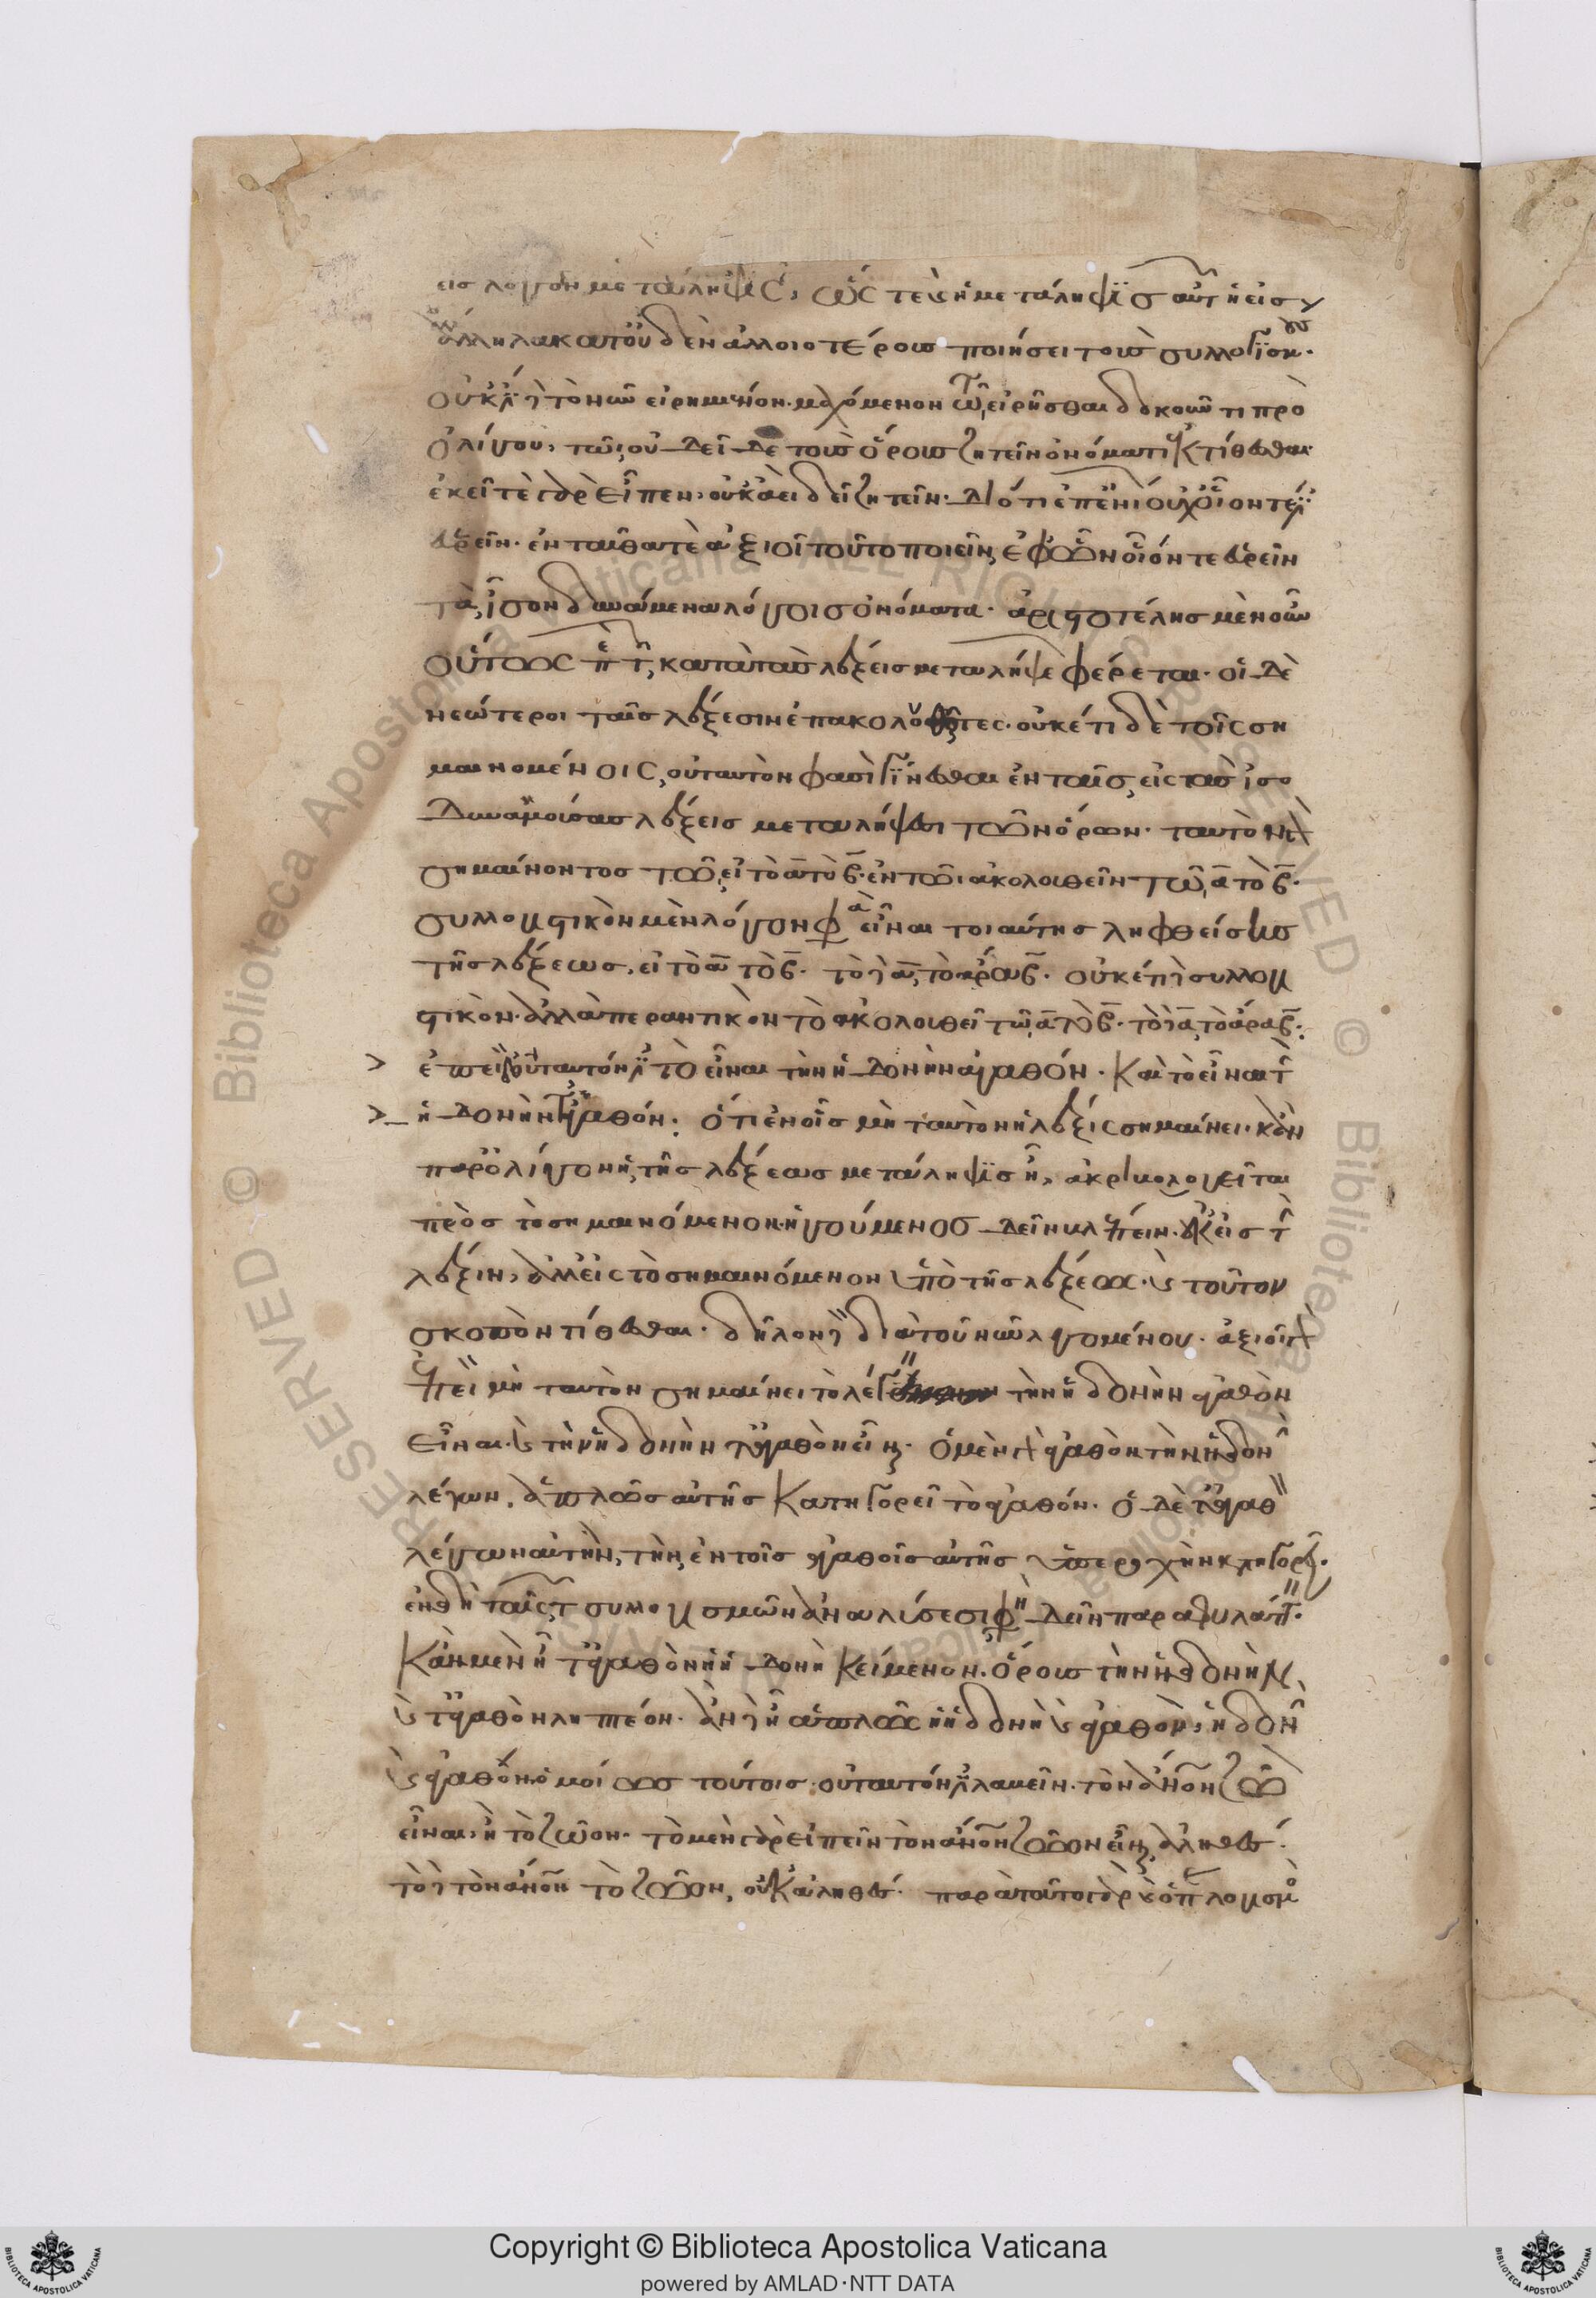 εἰς λόγον μετάληψις, ὥστε καὶ ἡ μετάληψις αὐτὴ εἰς
ἄλληλα κατ' οὐδὲν ἀλλοιοτέρους ποιήσει τοὺς συλλογισμούς.
οὐκ ἔστι δὲ τὸ νῦν εἰρημένον μαχόμενον τῷ εἰρῆσθαι δοκοῦντι πρὸ
ὀλίγου, τῷ, οὐ δεῖ δὲ τοὺς ὅρους ζητεῖν ὀνόματι ἐκτίθεσθαι.
ἐκεῖ τε γὰρ εἶπεν, οὐκ ἀεὶ δεῖ ζητεῖν. διότι ἐπ' ἐνίων οὐχ οἷόν τέ ἐστιν
εὑρεῖν. ἐνταῦθά τε ἀξιοῖ τοῦτο ποιεῖν, ἐφ' ὧν οἷόν τε εὑρεῖν
τὰ ἴσον δυνάμενα λόγοις ὀνόματα. ἀριστοτέλης μὲν οὖν
οὕτως περὶ τῶν κατὰ τὰς λέξεις μεταλήψεων φέρεται. οἱ δὲ
νεώτεροι ταῖς λέξεσιν ἐπακολουθοῦντες. οὐκέτι δὲ τοῖς ση
μαινομένοις, οὐ ταὐτόν φασι γίνεσθαι ἐν ταῖς εἰς τὰς ἰσο
δυναμούσας λέξεις μεταλήψεσι τῶν ὅρων. ταὐτὸν γὰρ
σημαίνοντος τοῦ, εἰ τὸ α τὸ β. ἐν τῷ ἀκολουθεῖν τῷ α τὸ β.
συλλογιστικὸν μὲν λόγον φασὶν εἶναι τοιαύτης ληφθείσης
τῆς λέξεως, εἰ τὸ α τὸ β. τὸ δὲ α, τὸ ἄρα β. οὐκέτι δὲ συλλογι
στικὸν. ἀλλὰ περαντικὸν τὸ ἀκολουθεῖ τῷ α τὸ β. τὸ δὲ α τὸ ἄρα β.
ἐπεὶ δ' οὐ ταυτόν ἐστι τὸ εἶναι τὴν ἡδονὴν ἀγαθόν. καὶ τὸ εἶναι τὴν
ἡδονὴν τὸ ἀγαθόν. ὅτι ἐν οἷς μὴ ταὐτὸν ἡ λέξις σημαίνει. κἂν
παρ' ὀλίγον ἡ τῆς λέξεως μετάληψις ᾖ, ἀκριβολογεῖται
πρὸς τὸ σημαινόμενον. ἡγούμενος δεῖν βλέπειν. οὐκ εἰς τὴν
λέξιν, ἀλλ' εἰς τὸ σημαινόμενον ὑπὸ τῆς λέξεως. καὶ τοῦτον
σκοπὸν τίθεσθαι. δῆλον δὲ διὰ τοῦ νῦν λεγομένου. ἀξιοῖ γὰρ
ἐπεὶ μὴ ταὐτὸν σημαίνει τὸ λέγειν τὴν ἡδονὴν ἀγαθὸν
εἶναι. καὶ τὴν ἡδονὴν τἀγαθὸν εἶναι. ὁ μὲν γὰρ ἀγαθὸν τὴν ἡδονὴν
λέγων, ἁπλῶς αὐτῆς κατηγορεῖ τὸ ἀγαθόν. ὁ δὲ τἀγαθὸν
λέγων αὐτὴν, τὴν ἐν τοῖς ἀγαθοῖς αὐτῆς ὑπεροχὴν κατηγορεῖ.
ἐν δὴ ταῖς τῶν συλλογισμῶν ἀναλύσεσί φησι δεῖν παραφυλάττειν.
κἂν μὲν ᾖ τἀγαθὸν ἡ ἡδονὴ κείμενον. ὅρους τὴν ἡδονὴν
καὶ τἀγαθὸν ληπτέον. ἂν δὲ ᾖ ἁπλῶς ἡ ἡδονὴ καὶ ἀγαθὸν, ἡδονὴν
καὶ ἀγαθόν. ὁμοίως τούτοις οὐ ταὐτόν ἐστι λαβεῖν. τὸν ἄνθρωπον ζῶον
εἶναι, ἢ τὸ ζῶον. τὸ μὲν γὰρ εἰπεῖν τὸν ἄνθρωπον ζῶον εἶναι, ἀληθές.
τὸ δὲ τὸν ἄνθρωπον τὸ ζῶον, οὐκ ἀληθές. παρὰ τοῦτο γὰρ καὶ ὁ παραλογισμὸς